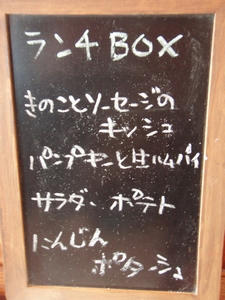 ランチBOX
きのことソーセージの
キッシュ
パンプキンと生ハムパイ
サラダ、ポテト
にんじん
ポタージュ